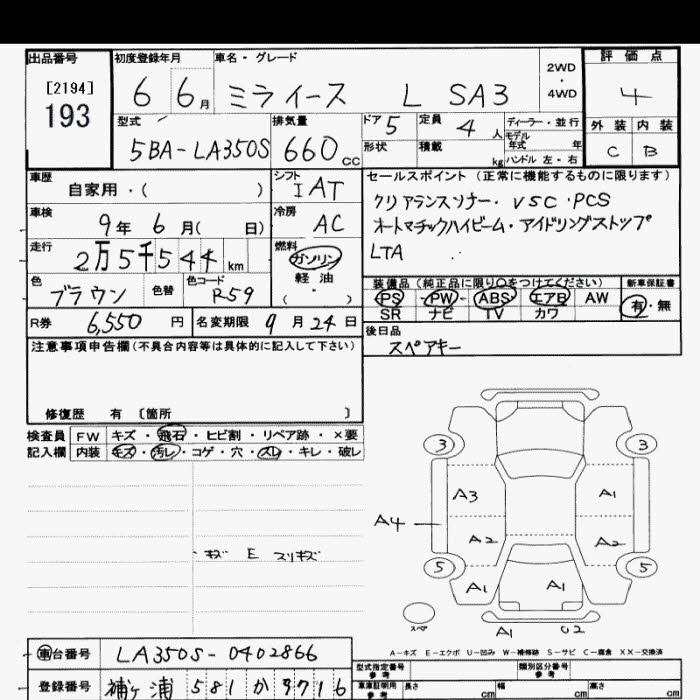 出品番号 初度登録年月 車名・グレード 評価点
[2194]
193
6 6月 ミライース L SA3 2WD・4WD 4
型式 排気量 ドア 5 定員 4人 ディーラー・並行 外装 内装
モデル年式 年
5BA-LA350S 660cc 形状 積載 kg ハンドル 左・右 C B
車歴 シフト セールスポイント(正常に機能するものに限ります)
自家用・( ) IAT クリアランスソナー・VSC・PCS
車検 冷房 オートマチックハイビーム・アイドリングストップ
9年6月( 日) AC LTA
走行 燃料
2万5千544km ガソリン
軽油
( ・ )
色 色替 色コード 装備品(純正品に限り○をつけてください) 新車保証書
ブラウン R59 PS PW ABS エアB AW 有・無
SR ナビ TV カワ
R券 6,550円 名変期限 9月24日 後日品
注意事項申告欄(不具合内容等は具体的に記入して下さい) スペアキー
修復歴 有 〔箇所 〕
検査員 FW キズ・飛石・ヒビ割・リペア跡・×要
記入欄 内装 キズ・汚レ・コゲ・穴・スレ・キレ・破レ
3 3
A3 A1
A4
A2 A2
・キズ E スリキズ
5 5
A1 A1
スペア
A1 U2
A-キズ E-エクボ U-凹み W-補修跡 S-サビ C-腐食 XX-交換済
車台番号 LA350S-0402866
型式指定番号 参考 類別区分番号 参考
登録番号 袖ヶ浦 581 か 9716
車庫証明用 参考 長さ cm 幅 cm 高さ cm